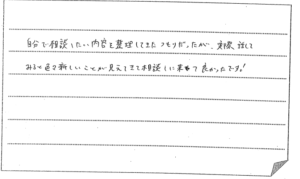 自分で相談したい内容を整理してきたつもりだったが、実際、話して
みると色々新しいことが見えてきて相談しに来れて良かったです。!